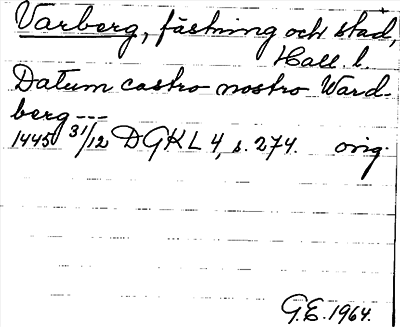 Varberg, fästning och stad,
Hall. l.
Datum castro nostro Ward-
berg ---
1445 31/12 DGKL 4, s. 274. orig.
G.E. 1964.